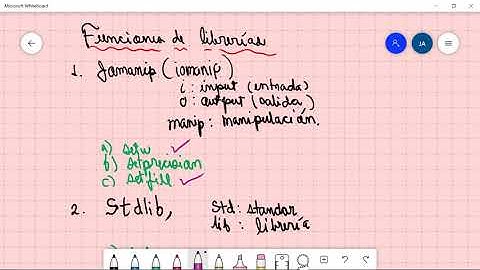 Microsoft Whiteboard
Funciones de librerías
JA
1. Iomanip (iomanip)
i : input (entrada)
o : output (salida)
manip : manipulación.
a) setw
b) setprecision
c) setfill
2. Stdlib,
Std : standar
lib : librería